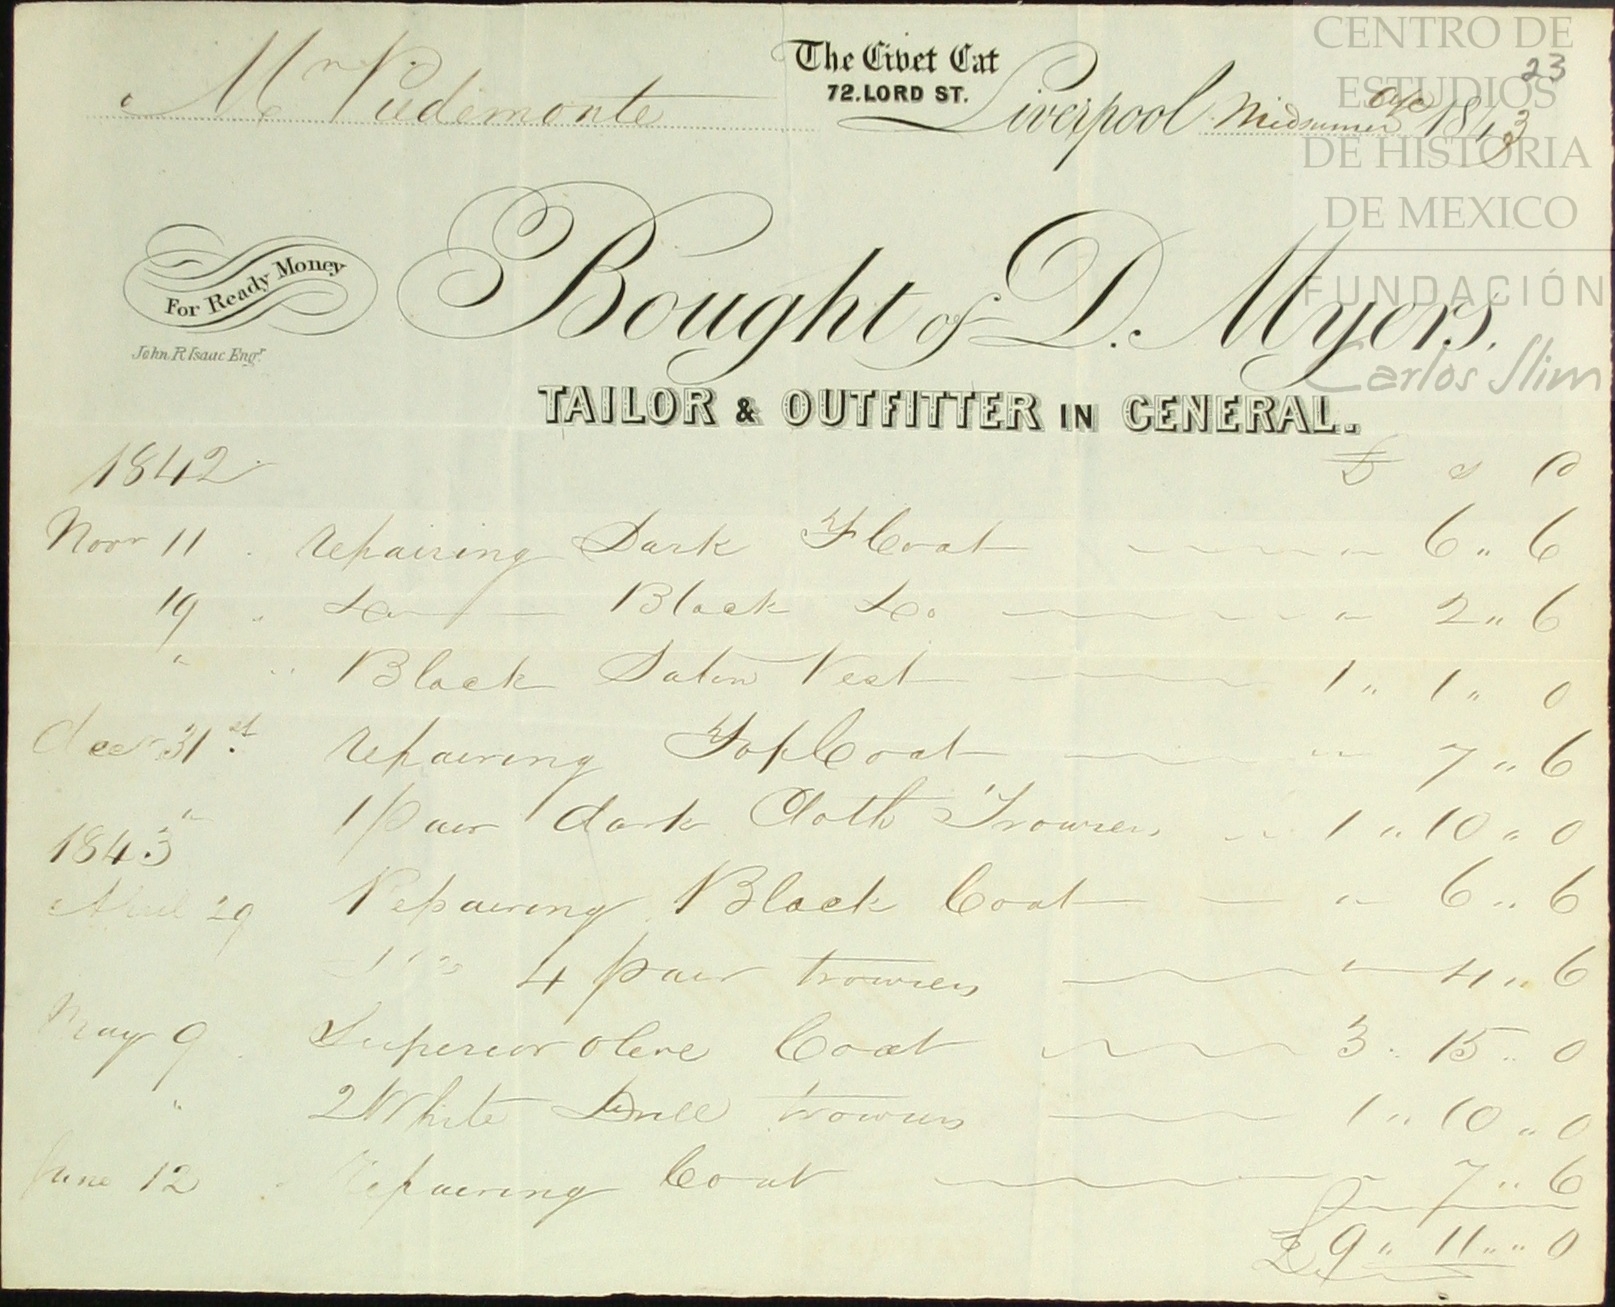 The Civet Cat
72. LORD ST.
Mr Piedemonte
Liverpool Midsummer 1843
23
CENTRO DE
ESTUDIOS
DE HISTORIA
DE MEXICO
FUNDACIÓN
Carlos Slim
For Ready Money
John R Isaac Engr.
Bought of D. Myers.
TAILOR & OUTFITTER IN GENERAL.
1842 £ s d
Novr 11 repairing Dark F Coat " 6 " 6
19 Do Black Do " 2 " 6
" Black Satin Vest 1 " 1 " 0
Decr 31st repairing Top Coat " 7 " 6
" 1 Pair dark Cloth Trowsers 1 " 10 " 0
1843
April 29 Repairing Black Coat " 6 " 6
4 pair trowsers " 4 " 6
May 9 Superior olive Coat 3 " 15 " 0
" 2 White Drill trowsers 1 " 10 " 0
June 12 Repairing Coat " 7 " 6
£ 9 " 11 " 0